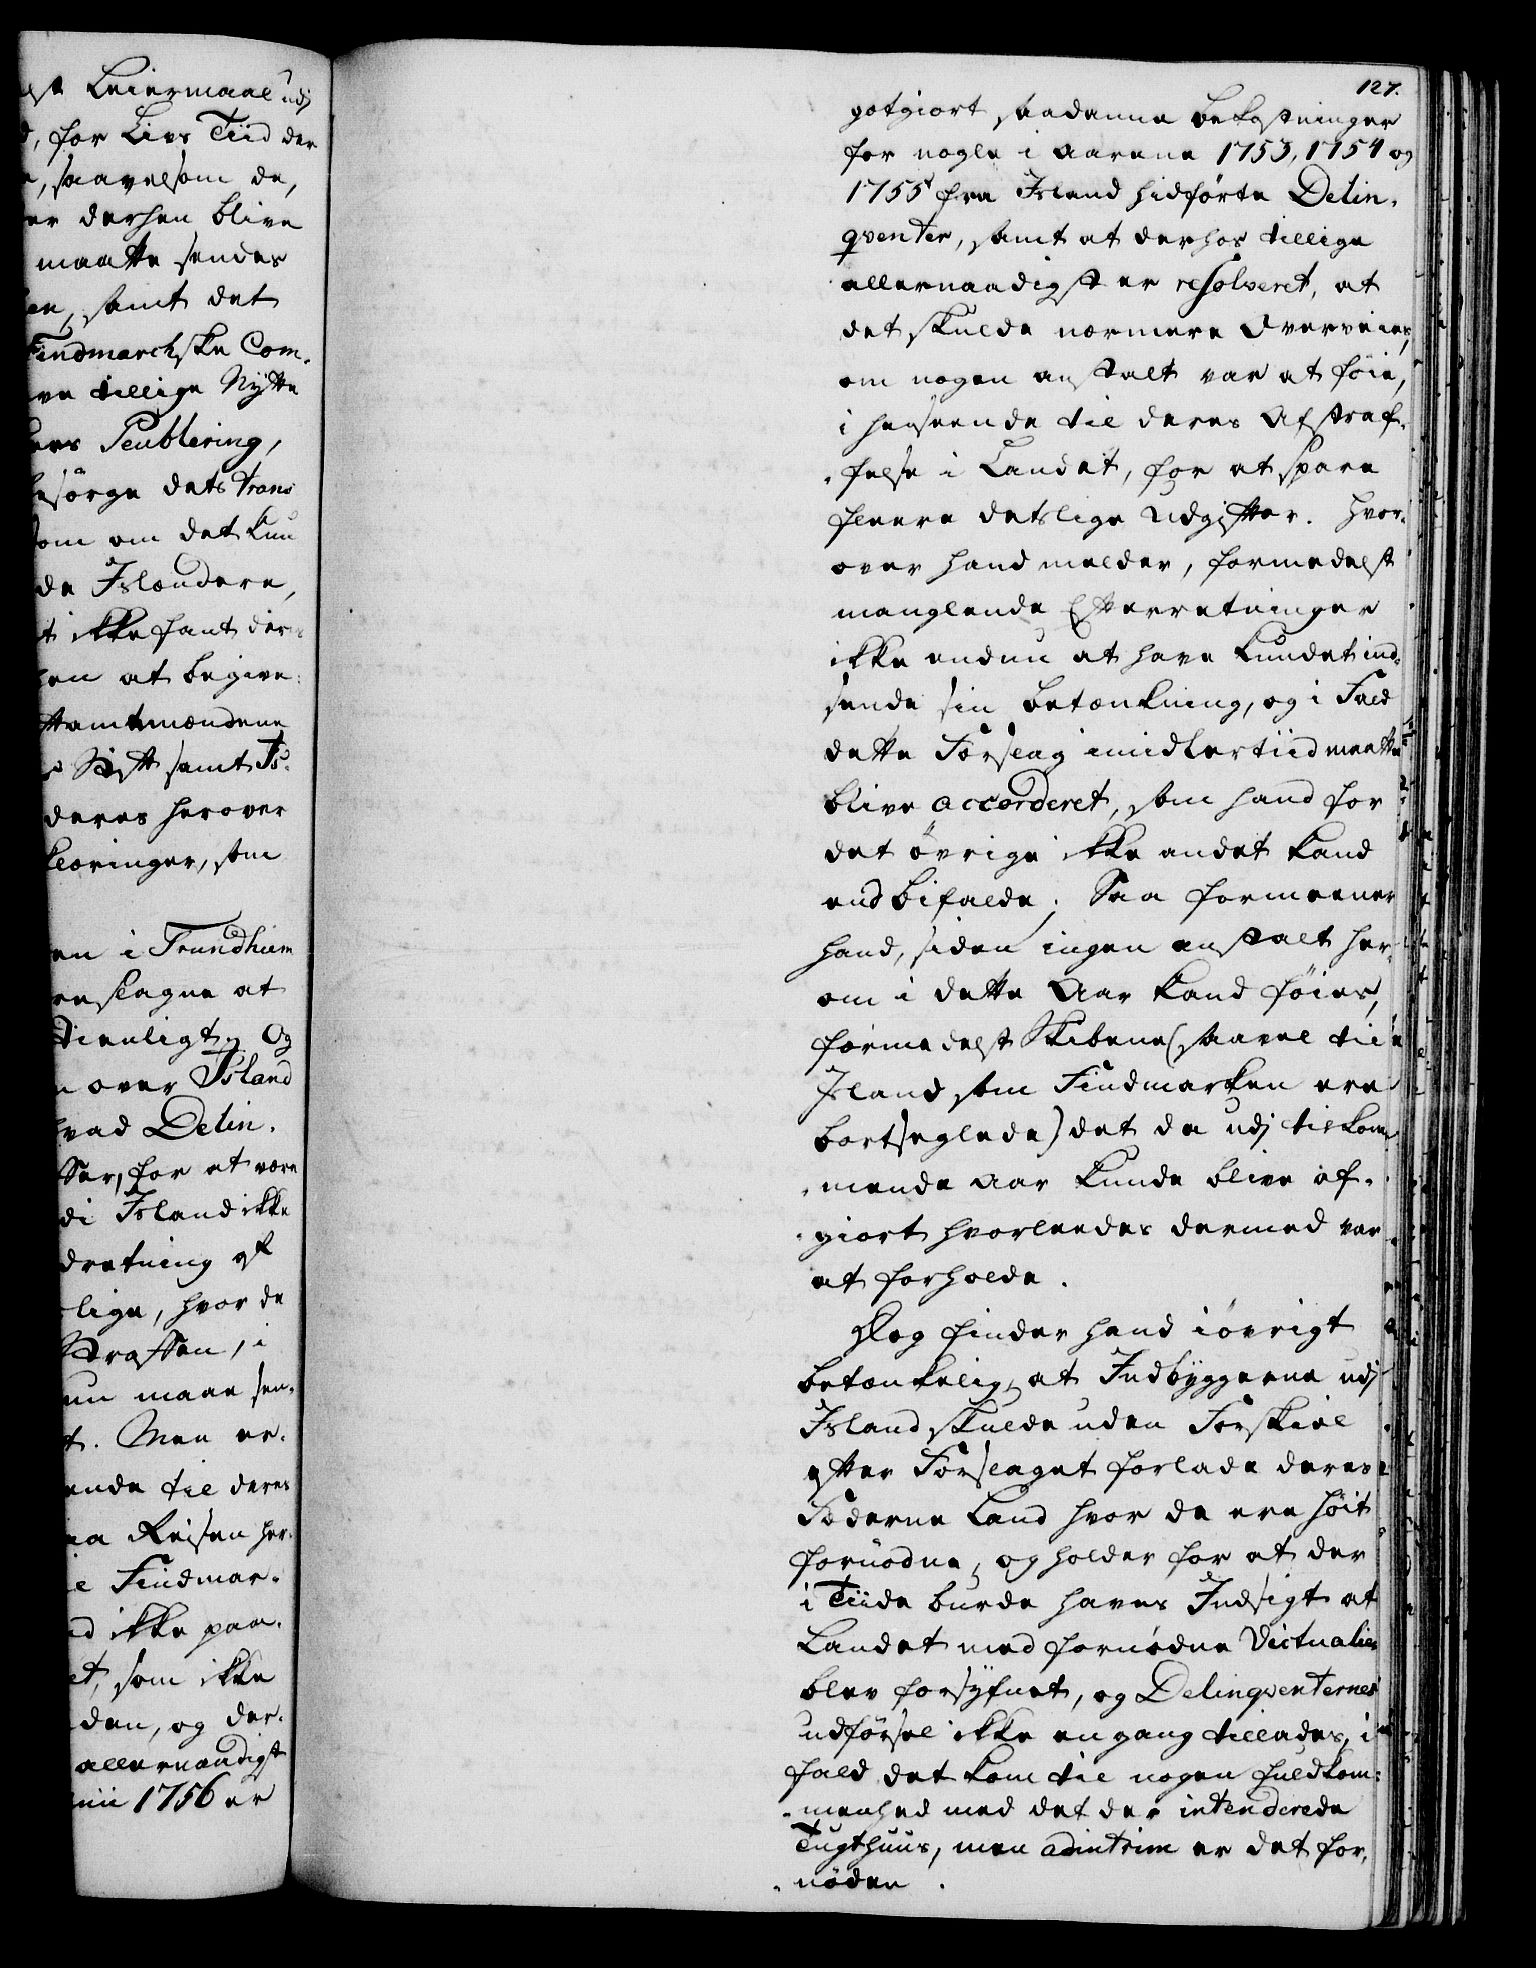 lst Leiermaal udj
d, for Livs Tiid der
e, saavelsom de,
er derhen blive
maatte sendes
en, samt det
Findmarchske Com-
ve tillige Nytte
eres Peublering,
esørge dets trans
som om det kun
de Islændere,
t ikke fant der
hen at begive:
Stamtmændene
Stift samt Is-
deres herover
klæringer, som
en i Trundhiem
eslagne at
tienligt, Og
n over Island
hvad Delin-
Sær, for at være
di Island ikke
dretning af
lige, hvor de
Straffen, i
un maae sen-
t. Men er-
ende til deres
aa Reisen her-
e Findmar-
d ikke paa-
et, som ikke
den, og der-
allernaadigst
unii 1756 er
127.
gotgiort saadanne bekostninger
for nogle i Aarene 1753, 1754 og
1755 fra Island hidførte Delin-
qventer, samt at derhos tillige
allernaadigst er resolveret, at
det skulde nærmere Overveies,
om nogen anstalt var at føie,
i henseende til deres Afstraf-
felse i Landet, for at spare
fleere deslige Udgifter. Hvor-
over hand melder, formedelst
manglende Efterretninger
ikke endnu at have kundet ind-
sende sin betænkning, og i Fald
dette Forslag imidlertiid maatte
blive accorderet, som hand for
det øvrige ikke andet kand
end bifalde; Saa formeener
hand, siden ingen anstalt her-
om i dette Aar kand føies,
formedelst Skibene (saavel til
Island som Findmarken ere
bortseglede) det da udj tilkom-
mende Aar kunde blive af-
giort hvorledes dermed var
at forholde.
Dog finder hand iøvrigt
betænkelig, at Indbyggerne udj
Island skulde uden Forskiel
efter Forslaget forlade deres
Føderne Land hvor de ere høit
fornødne, og holder for at der
i Tiide burde haves Indsigt at
Landet med fornødne Victualier
blev forsyfnet, og Delinqventernes
udførsel ikke engang tillades, i
fald det kom til nogen fuldkom-
menhed med det der intenderede
Tugthuus, men adintrim er det for-
nøden.